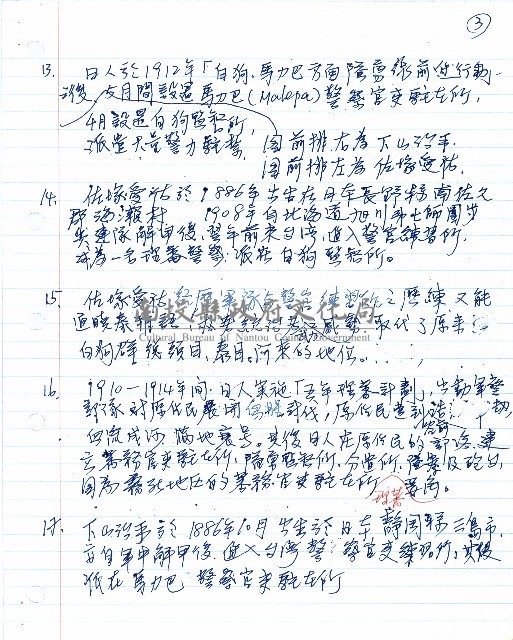 ③
13. 日人於1912年「白狗、馬力巴方面隘勇線前進行動」
後，5月間設置馬力巴(Malepa)警察官吏駐在所，
4月設置白狗監督所，
派遣大量警力駐紮，圖前排右為下山治平，
圖前排左為佐塚愛祐。
14. 佐塚愛祐於1886年出生在日本長野縣南佐久
郡海瀨村 1908年自北海道旭川第七師團步
兵連隊解甲後，翌年前來台灣，進入警官練習所，
成為一名理蕃警察，派在白狗監督所。
15. 佐塚愛祐經歷軍隊與警官練習所之歷練，又能
通曉泰雅語，取代了原來
白狗群總頭目、的地位。
16. 1910-1914年間，日人實施「五年理蕃計劃」，出動軍警
部隊對原住民展開討伐，原住民遭到
血流成河，滿地哀號。其後日人在原住民的部落建
立蕃務官吏駐在所、隘勇監督所、分遣所、隘寮及砲台，
圖為霧社地區的蕃務官吏駐在所
17. 下山治平於1886年10月出生於日本靜岡縣三島市，
亦自軍中解甲後，進入台灣警察官吏練習所，
派在馬力巴警察官吏駐在所
南投縣政府文化局
Cultural Bureau of Nantou County Government